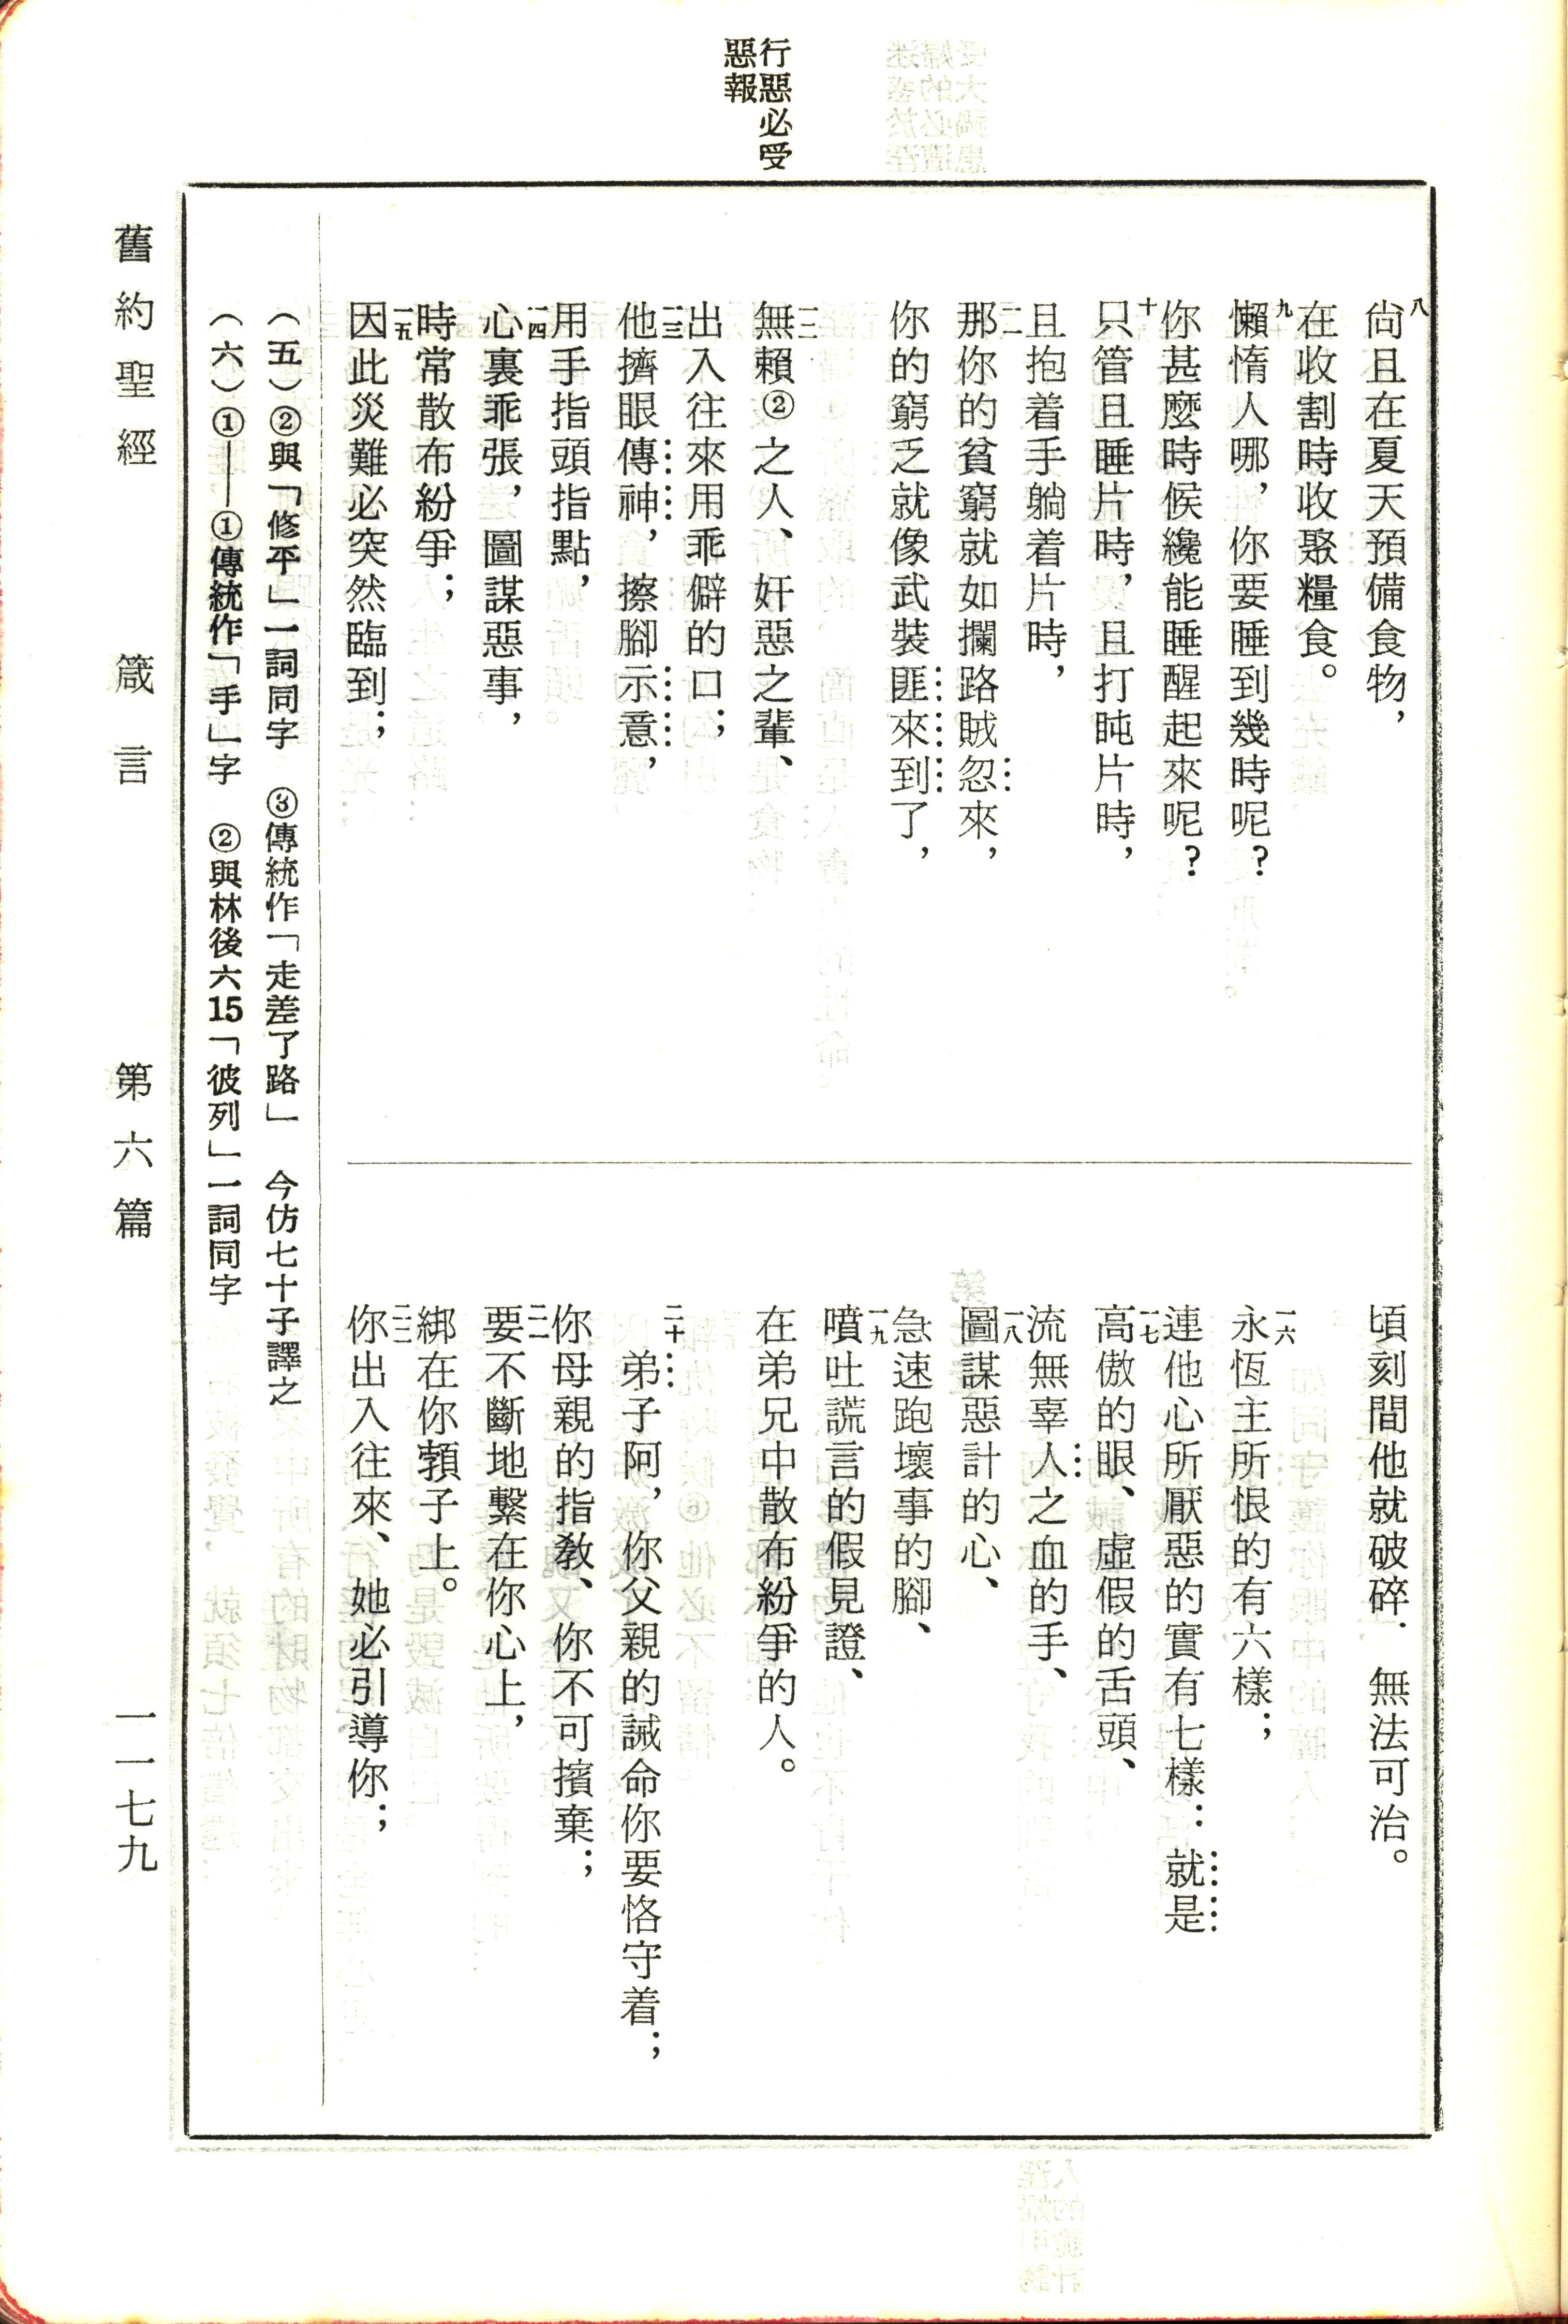 行惡必受
惡報
八尙且在夏天預備食物，
在收割時收聚糧食。
九懶惰人哪，你要睡到幾時呢？
你甚麼時候纔能睡醒起來呢？
十只管且睡片時，且打盹片時，
且抱着手躺着片時，
一一那你的貧窮就如攔路賊忽來，
你的窮乏就像武裝匪來到了，
一二無賴②之人、奸惡之輩、
出入往來用乖僻的口；
一三他擠眼傳神，擦腳示意，
用手指頭指點，
一四心裏乖張，圖謀惡事，
時常散布紛爭；
一五因此災難必突然臨到；
頃刻間他就破碎．無法可治。
一六永恆主所恨的有六樣；
連他心所厭惡的實有七樣：就是
一七高傲的眼、虛假的舌頭、
流無辜人之血的手、
一八圖謀惡計的心、
急速跑壞事的腳、
一九噴吐謊言的假見證、
在弟兄中散布紛爭的人。
二十弟子阿，你父親的誡命你要恪守着；
你母親的指教、你不可擯棄；
二一要不斷地繫在你心上，
綁在你顙子上。
二二你出入往來、她必引導你；
（五）②與「修平」一詞同字　③傳統作「走差了路」　今仿七十子譯之
（六）①——①傳統作「手」字　②與林後六15「彼列」一詞同字
舊約聖經　箴言　第六篇　一一七九